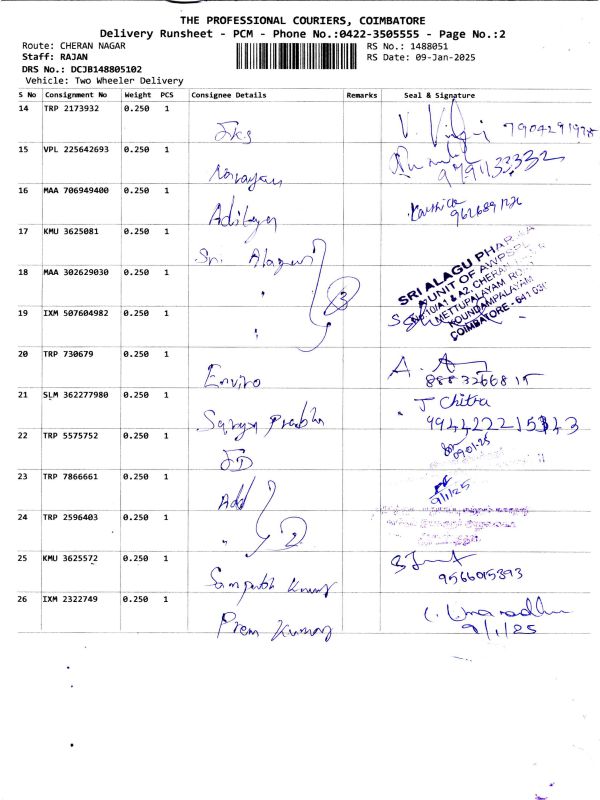 THE PROFESSIONAL COURIERS, COIMBATORE
Delivery Runsheet - PCM - Phone No.:0422-3505555 - Page No.:2
Route: CHERAN NAGAR
RS No.: 1488051
Staff: RAJAN
RS Date: 09-Jan-2025
DRS No.: DCJB148805102
Vehicle: Two Wheeler Delivery
S No Consignment No Weight PCS Consignee Details Remarks Seal & Signature
14 TRP 2173932 0.250 1
7904291978
15 VPL 225642693 0.250 1 Narayan
9791133332
16 MAA 706949400 0.250 1 Aditya
Karthick
17 KMU 3625081 0.250 1 Sri Alaguri
18 MAA 302629030 0.250 1 "
3
SRI ALAGU PHARMA
A UNIT OF AWPSPL
METTUPALAYAM ROAD
KOUNDAMPALAYAM
COIMBATORE - 641 030
19 IXM 507604982 0.250 1 "
20 TRP 730679 0.250 1 Enviro
21 SLM 362277980 0.250 1 Sarya Prabha
J Chitra
22 TRP 5575752 0.250 1 JD
09.01.25
23 TRP 7866661 0.250 1 Add
9/1/25
24 TRP 2596403 0.250 1 " 2
25 KMU 3625572 0.250 1 Sampath Kumar
9566015393
26 IXM 2322749 0.250 1 Prem Kumar
9/1/25